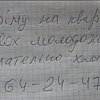 зіму на квар
вох молодюх
лательно хло
64-24-47